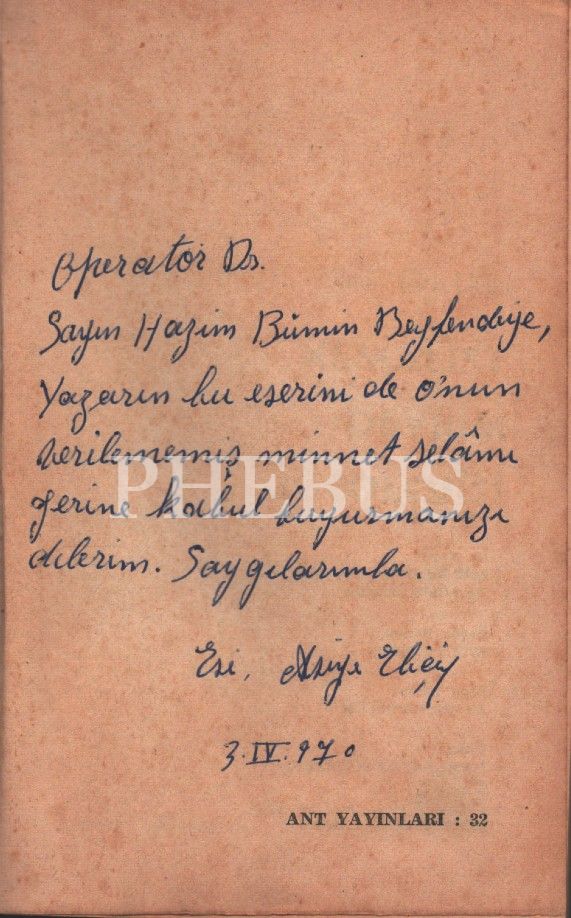 Operatör Dr.
Sayın Hazim Bumin Beyfendiye,
Yazarın bu eserini de o'nun
verilememiş minnet selâmı
PHEBUS
yerine kabul buyurmanızı
dilerim. Saygılarımla.
Eşi, Asiye Eliçin
3.IV.970
ANT YAYINLARI : 32